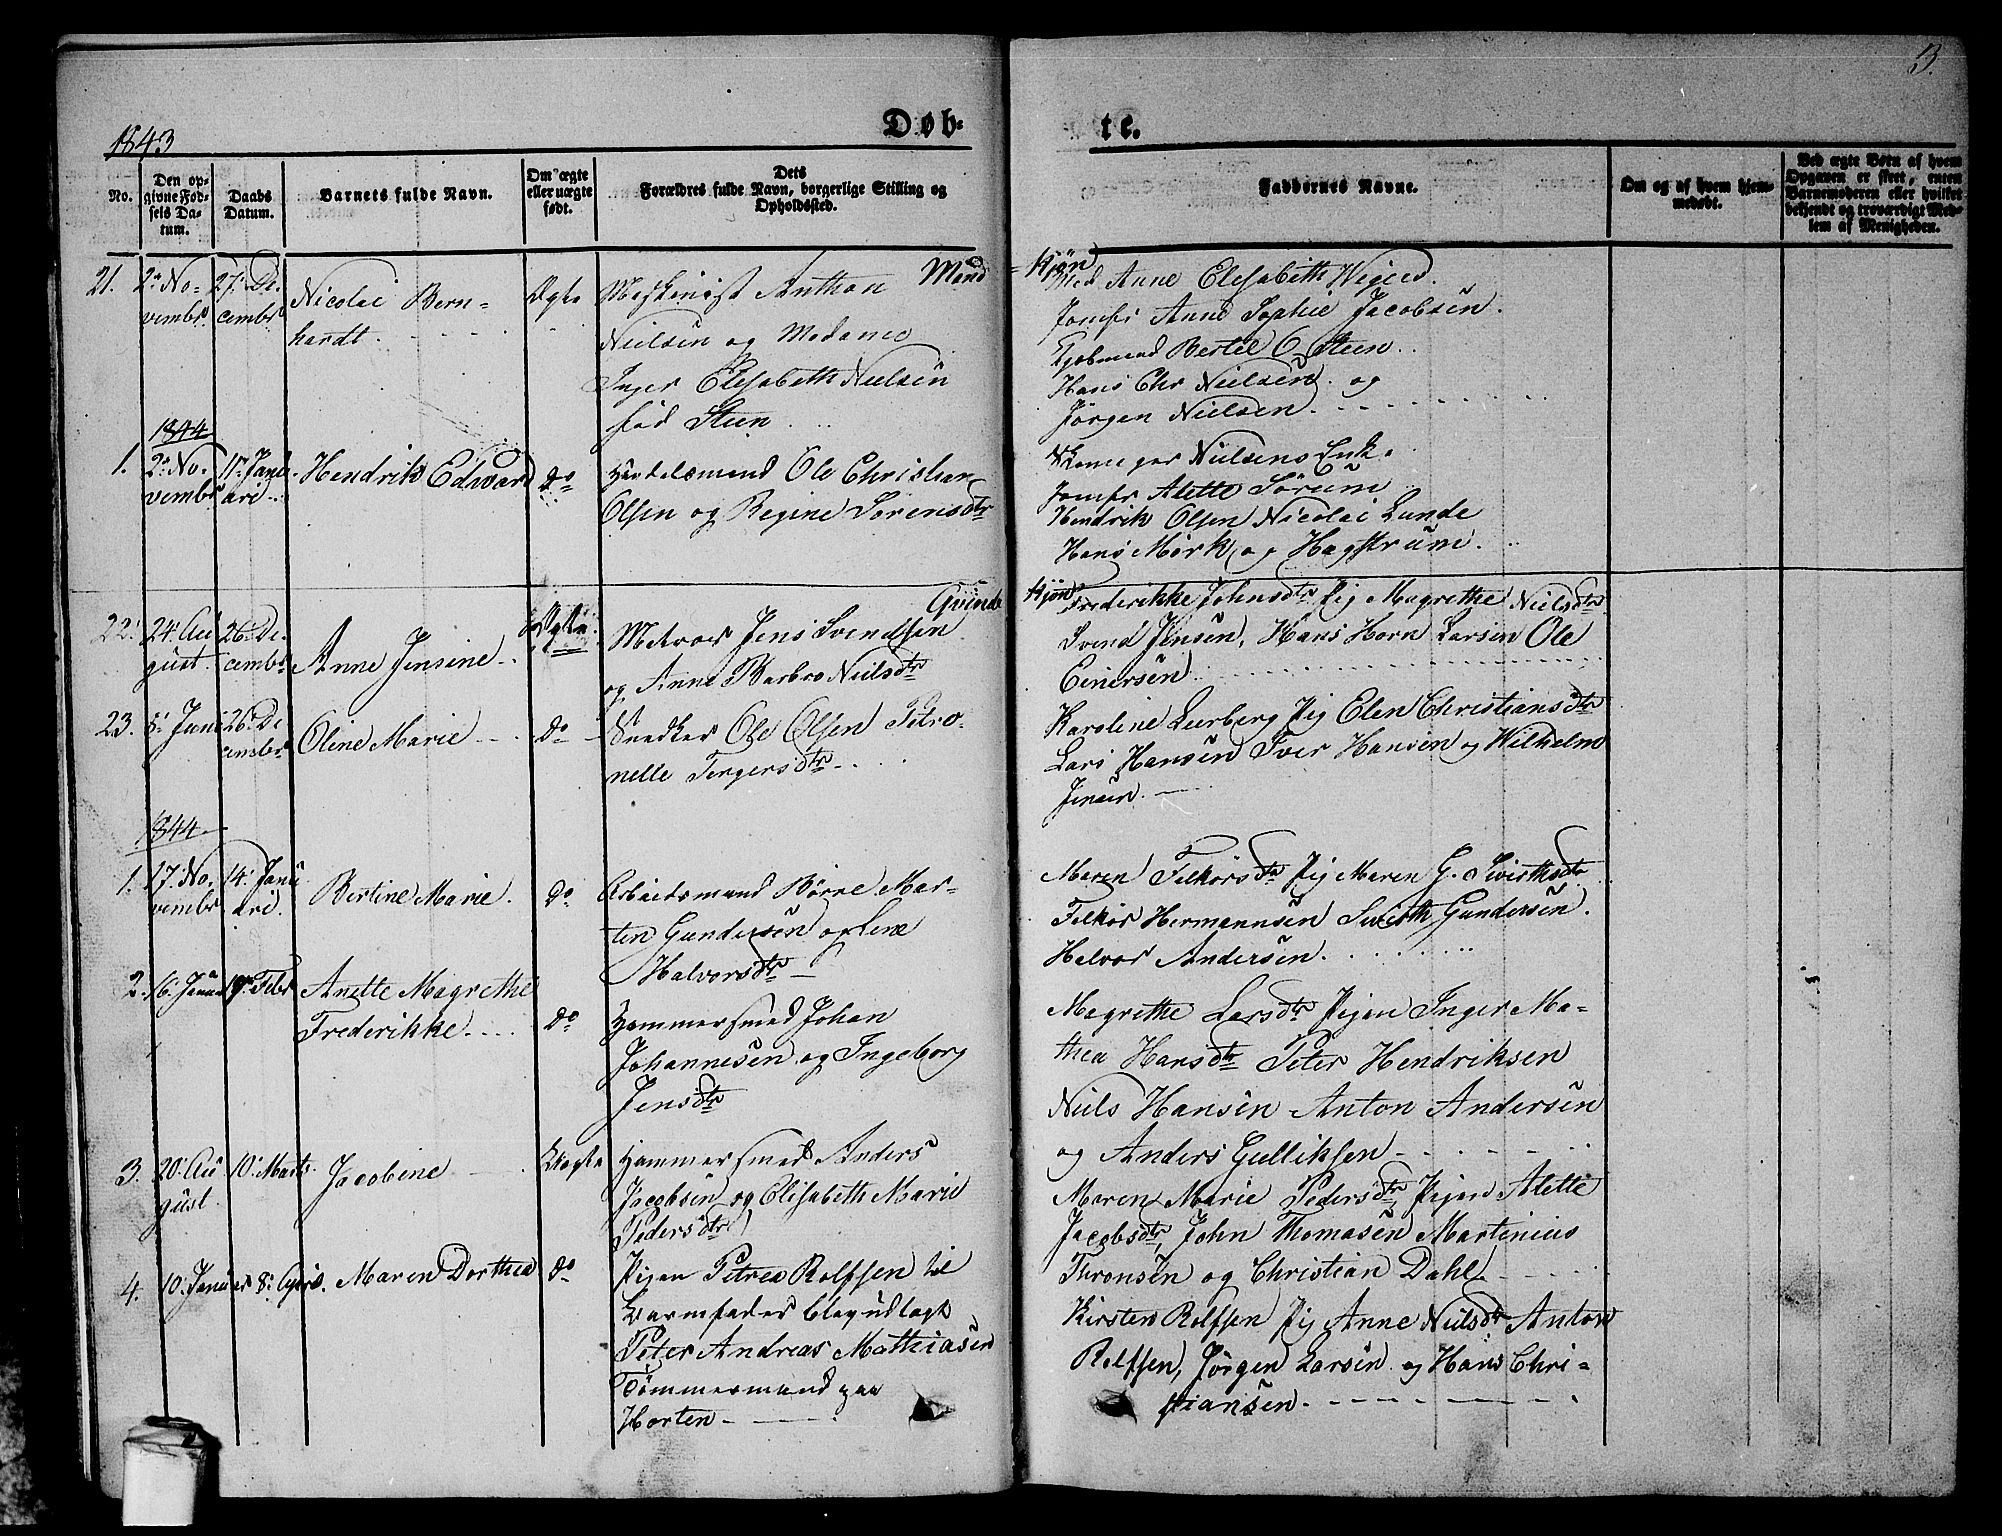 3.
1843
Døb-
te.
No.
Den op-
givne Fød-
sels Da-
tum.
Daabs
Datum.
Barnets fulde Navn.
Om ægte
eller uægte
født.
Dets
Forældres fulde Navn, borgerlige Stilling og
Opholdssted.
Faddernes Navne.
Om og af hvem hjem-
medøbt.
Ved ægte Børn af hvem
Opgaven er skeet, enten
Barnemoderen eller hvilket
bekjendt og troværdigt Med-
lem af Menigheden.
Mand - Kjøn
21.
2: No-
vembr
27: De-
cembr
Nicolai Bern-
hardt.
Ægte
Maskinist Anthon
Nielsen og Madame
Inger Elisabeth Nielsen
fød Steen
Mad Anne Elisabeth
Jomfr Anne Sophie Jacobsen.
Bertel C. Steen
Hans Chr Nielsen. og
Jørgen Nielsen.
1844
1.
2: No-
vembr
11: Janu-
ari
Hendrik Edward
do
Ole Christian
Olsen og Regine Sørensdtr
Nielsens Enke
Jomfr Alette Sørum
Hendrik Olsen Nicolai Lunde
Hans Mørk og Hagstrum.
Qvinde Kjøn
22.
24: Au-
gust.
26: De-
cembr
Anne Jensine
Ægte
Matros Jens Svendsen
og Anne Barbro Nielsdtr
Frederikke Johnsdtr Pig Magrethe Nielsdtr
Svend Jensen, Hans Horn Larsen Ole
Einersen
23.
5: Juni
26: De-
cembr
Oline Marie
do
Snedker Ole Olsen Petro-
nelle Torgersdtr
Karoline Leerberg Pig Elen Christiansdtr
Lars Hansen Iver Hansen og Wilhelm
Jensen.
1844
1.
17: No-
vembr
14: Janu-
ari.
Bertine Marie.
do
Arbeidsmand Børre Mar-
ten Gundersen og Lene
Halvorsdtr
Maren Felkørsdtr Pig Maren G. Sivirthsdtr
Felkør Hermannsen Sivirth Gundersen.
Halvor Andersen.
2.
16: Janua
19: Febr
Anette Magrethe
Frederikke.
do
Hammersmed Johan
Johannesen og Ingeborg
Jensdtr
Magrethe Larsdtr Pigen Inger Ma-
thea Hansdtr Peter Hendriksen
Niels Hansen Anton Andersen
og Anders Gulliksen
3.
20: Au-
gust.
10: Marts.
Jacobine
Uægte
Hammersmed Anders
Jacobsen og Elisabeth Marie
Pedersdtr
Maren Marie Pedersdtr, Pigen Alette
Jacobsdtr, John Thomasen Martinius
Thronsen og Christian Dahl
4.
10: Januar
8: April.
Maren Dorthea
do
Pigen Petrea Rolfsen til
Barnefader blev udlagt
Peter Andreas Mathiasen
Tømmermand paa
Horten
Kirsten Rolfsen Pig Anne Nielsdtr Anton
Rolfsen, Jørgen Larsen og Hans Chri-
stiansen.